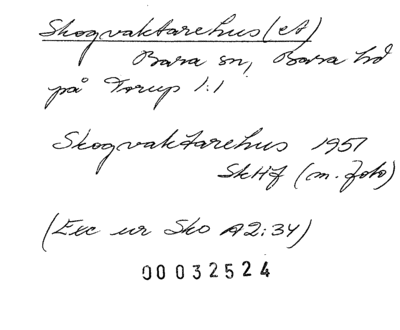 Skogvaktarehus (et)
Bara sn, Bara hd
på Torup 1:1
Skogvaktarehus 1957
SkHf (m. foto)
(Exc ur Sko A2:34)
00032524